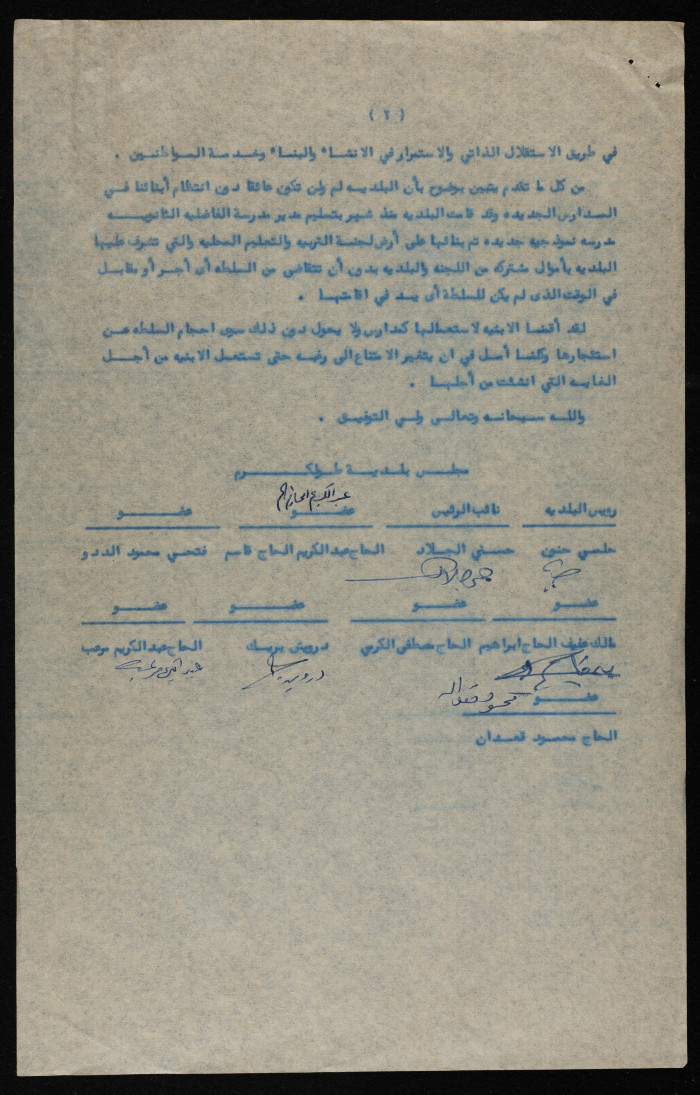 ( ٢ )
في طريق الاستقلال الذاتي والاستمرار في الانشاء والبناء وخدمة المواطنين .
من كل ما تقدم يتبين بوضوح بأن البلديه لم ولن تكون عائقا دون انتظام أبنائنا في
المدارس الجديده وقد قامت البلديه منذ شهر بتسليم مدير مدرسة الفاضليه الثانويه
مدرسه نموذجيه جديده تم بنائها على أرض لجنة التربيه والتعليم المحليه والتي تشرف عليها
البلديه بأموال مشتركه من اللجنه والبلديه بدون أن تتقاضى من السلطه أى أجر أو مقابل
في الوقت الذى لم يكن للسلطة أى يد في اقامتها .
لقد أقمنا الابنيه لاستعمالها كمدارس ولا يحول دون ذلك سوى احجام السلطه عن
استئجارها وكلنا أمل في ان يتغير الامتناع الى رغبه حتى تستعمل الابنيه من أجل
الغايه التي انشئت من أجلها .
والله سبحانه وتعالى ولي التوفيق .
مجلس بلدية طولكرم
رئيس البلديه نائب الرئيس عضو عضو
حلمي حنون حسني الجلاد الحاج عبد الكريم الحاج قاسم فتحي محمود الددو
عضو عضو عضو عضو
مالك عفيف الحاج ابراهيم الحاج مصطفى الكرمي درويش بريك الحاج عبد الكريم مرعب
عبد الكريم مرعب
عضو
الحاج محمود قعدان